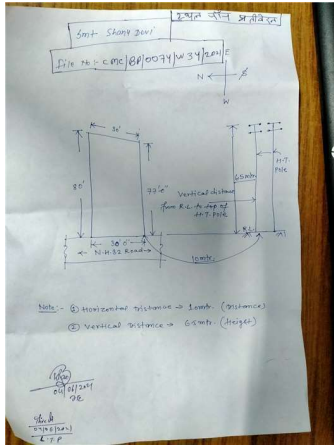 स्थल जाँच प्रतिवेदन
Smt Shanti Devi
file No:- CMC/BP/0074/W34/2021
E
N
S
W
30'
80'
77'-6"
30'0"
N.H.32 Road
Vertical distance
from R.L. to top of
H.T. Pole
6.5mtr.
H.T.
Pole
R.L.
10mtr.
Note:- ① Horizontal Distance → 10mtr. (Distance)
② Vertical Distance → 6.5mtr. (Heigt)
04/06/2021
JE
07/06/2021
L.T.P